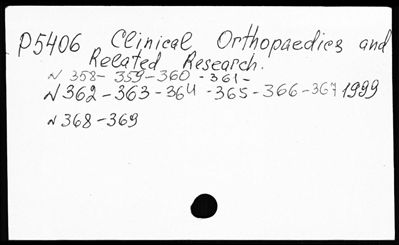 P5406 Clinical Orthopaedics and
Related Research.
N 358-359-360-361-
N 362-363-364-365-366-367 1999
N 368-369